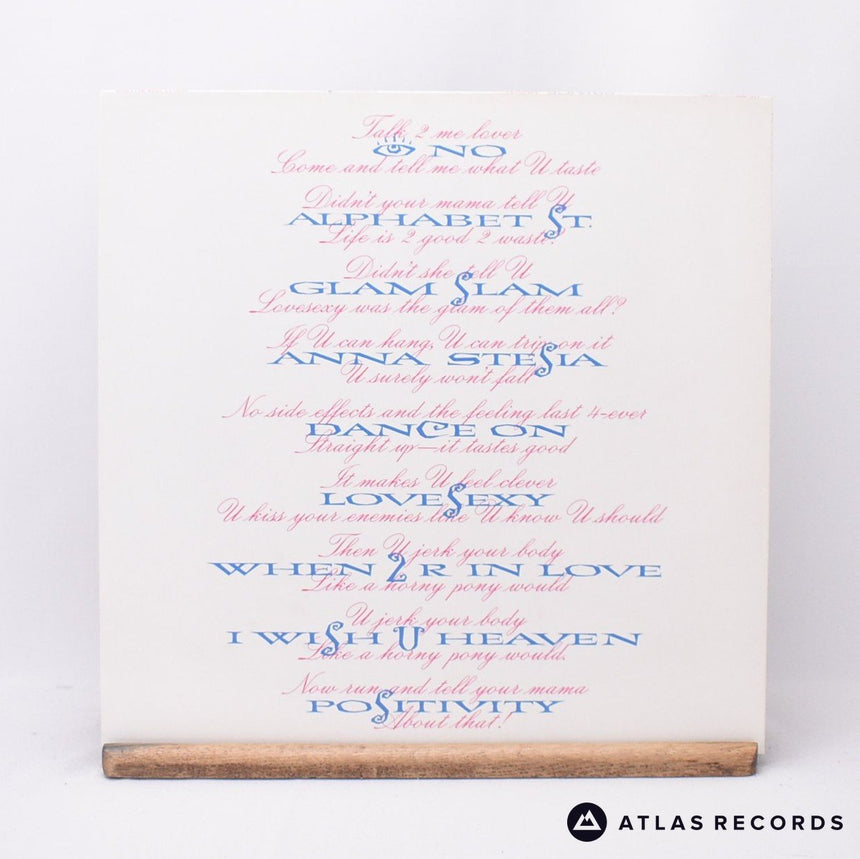 Talk 2 me lover
👁 NO
Come and tell me what U taste
Didn't your mama tell U
ALPHABET ST.
Life is 2 good 2 waste?
Didn't she tell U
GLAM SLAM
Lovesexy was the glam of them all?
If U can hang, U can trip on it
ANNA STESIA
U surely won't fall
No side effects and the feeling last 4-ever
DANCE ON
Straight up—it tastes good
It makes U feel clever
LOVESEXY
U kiss your enemies like U know U should
Then U jerk your body
WHEN 2 R IN LOVE
Like a horny pony would
U jerk your body
I WISH U HEAVEN
Like a horny pony would.
Now run and tell your mama
POSITIVITY
About that!
ATLAS RECORDS